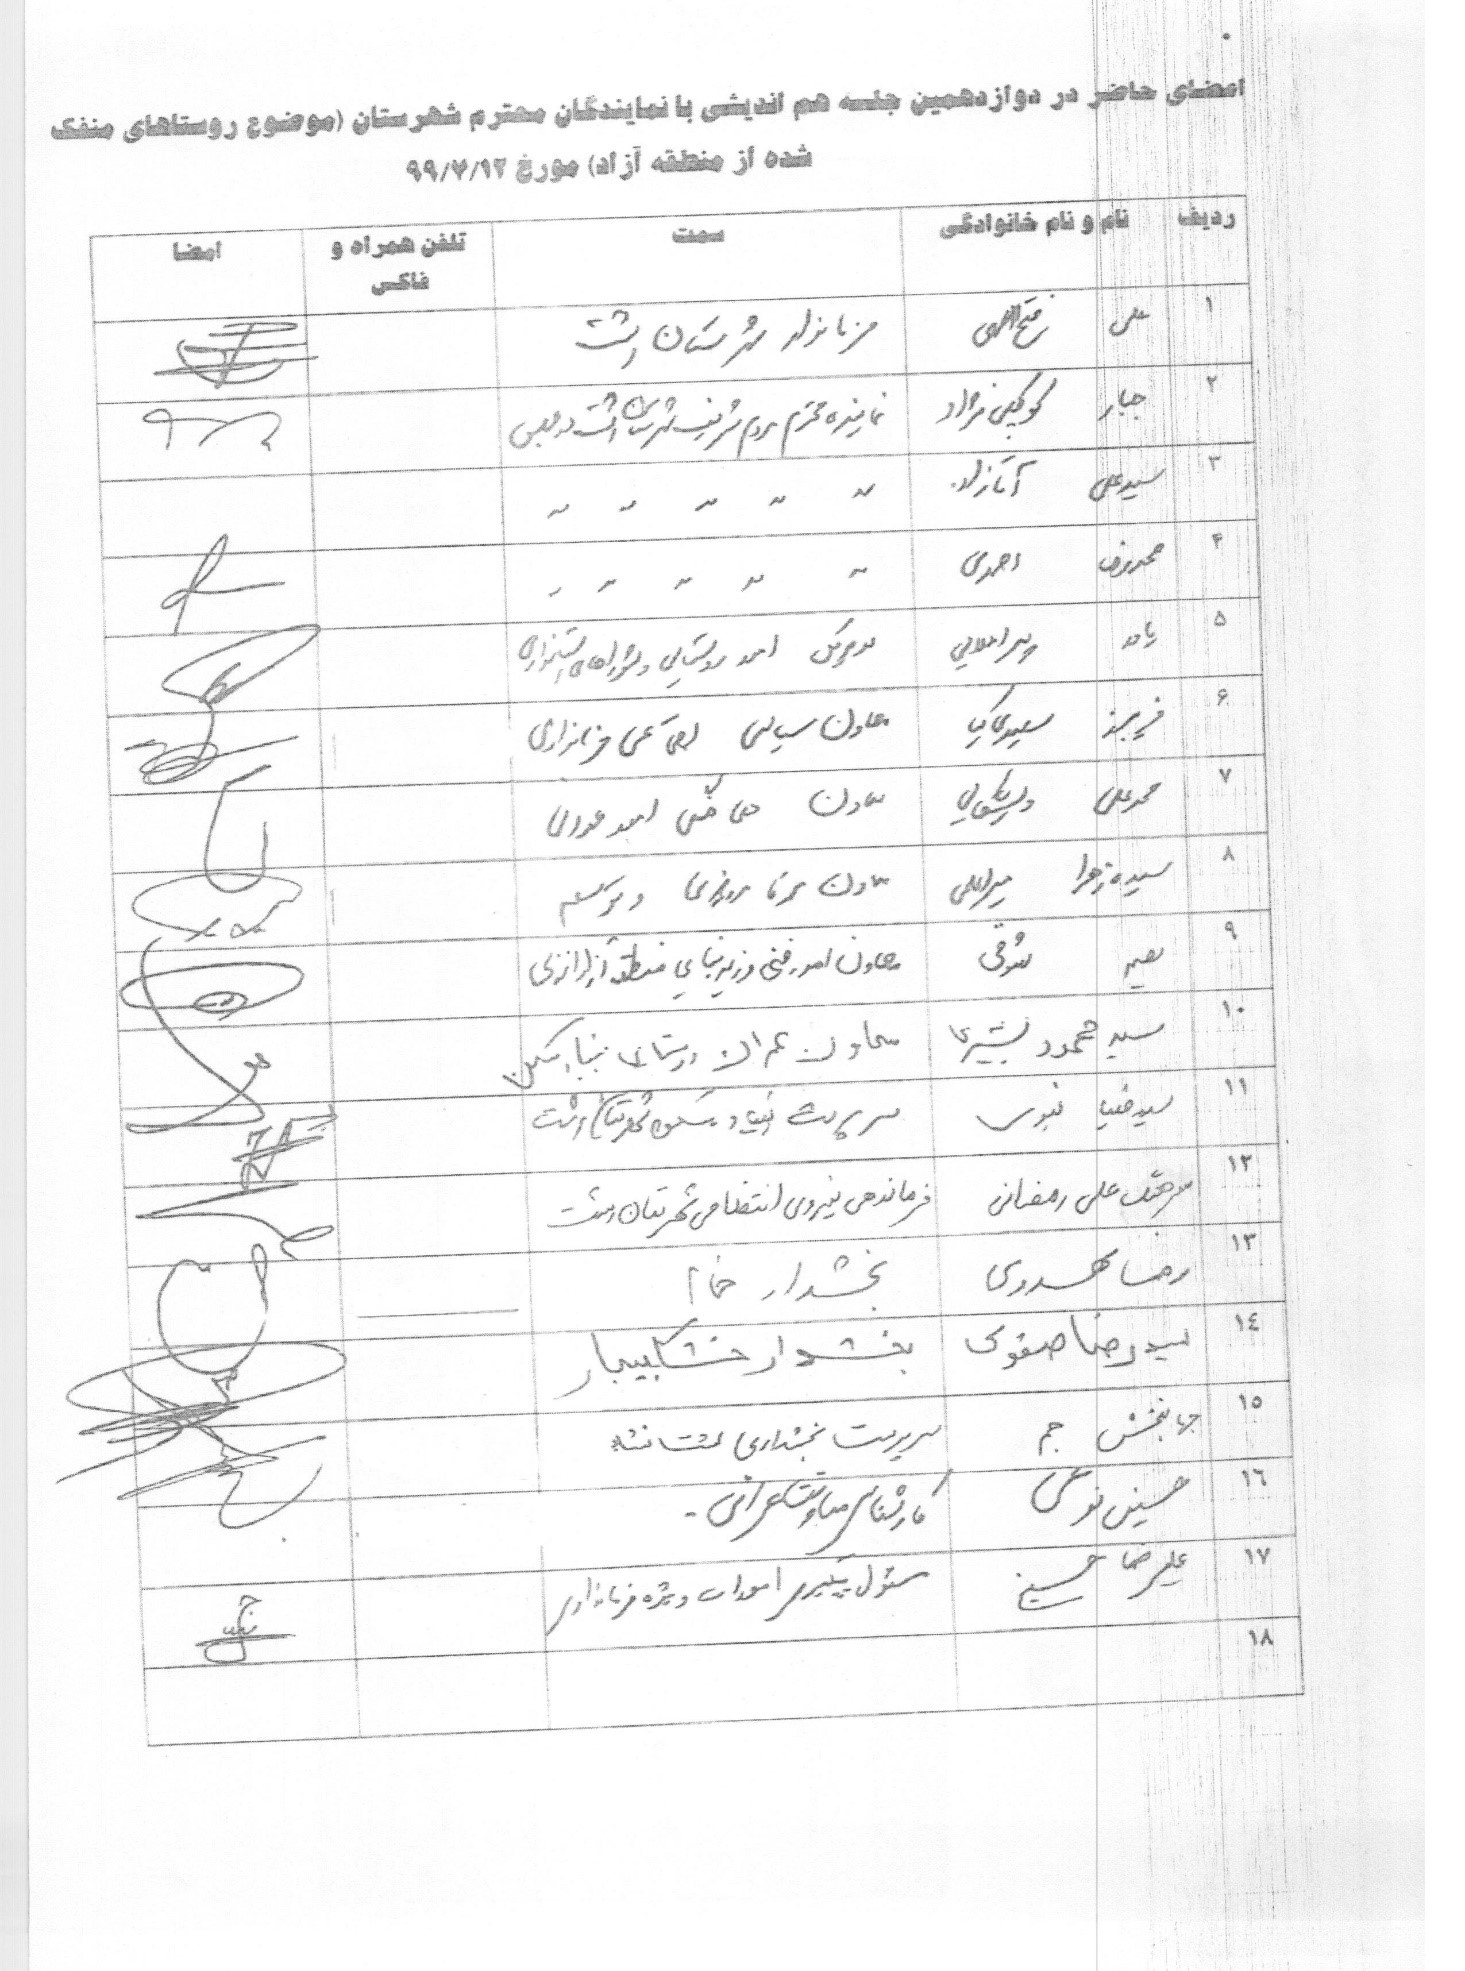 امضای حاضر در دوازدهمین جلسه هم اندیشی با نمایندگان محترم شهرستان (موضوع روستاهای منفک
شده از منطقه آزاد) مورخ ۹۹/۷/۱۲
ردیف نام و نام خانوادگی سمت تلفن همراه و فاکس امضا
۱ علی فتح اللهی فرماندار شهرستان رشت
۲ جبار کوچکی نژاد نماینده محترم مردم شریف شهرستان رشت در مجلس
۳ سیدعلی آقازاده " " " " "
۴ محمدرضا احمدی " " " " "
۵ مدیرکل امور روستایی و شوراهای استانداری
۶ فریبرز سعیدی کیا معاون سیاسی اجتماعی فرمانداری
۷ محمدعلی معاون هماهنگی امور عمرانی
۸ سیده زهرا معاون برنامه ریزی و توسعه
۹ شوقی معاون امور فنی و زیربنایی منطقه آزاد انزلی
۱۰ سید محمود بشیری معاون عمران روستایی بنیاد مسکن
۱۱ سید ضیاء نبوی سرپرست بنیاد مسکن شهرستان رشت
۱۲ سرهنگ علی رمضانی فرماندهی نیروی انتظامی شهرستان رشت
۱۳ رضا خسروی بخشدار خمام
۱۴ سیدرضا صفوی بخشدار خشکبیجار
۱۵ جهانبخش جم سرپرست بخشداری لشت نشاء
۱۶ حسینی کارشناس معاونت عمرانی -
۱۷ علیرضا حسینی مسئول پیگیری امورات ویژه فرمانداری
۱۸